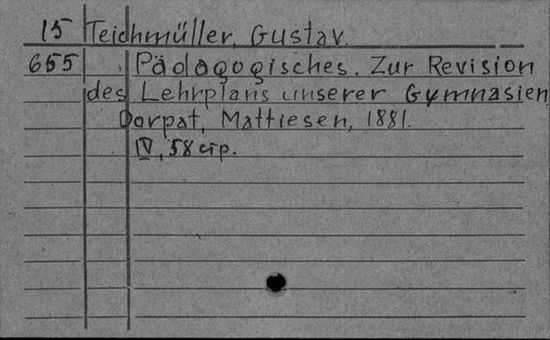 15 Teichmüller, Gustav.
655 Pädagogisches. Zur Revision
des Lehrplans unserer Gymnasien
Dorpat, Mattiesen, 1881.
IV, 58 стр.